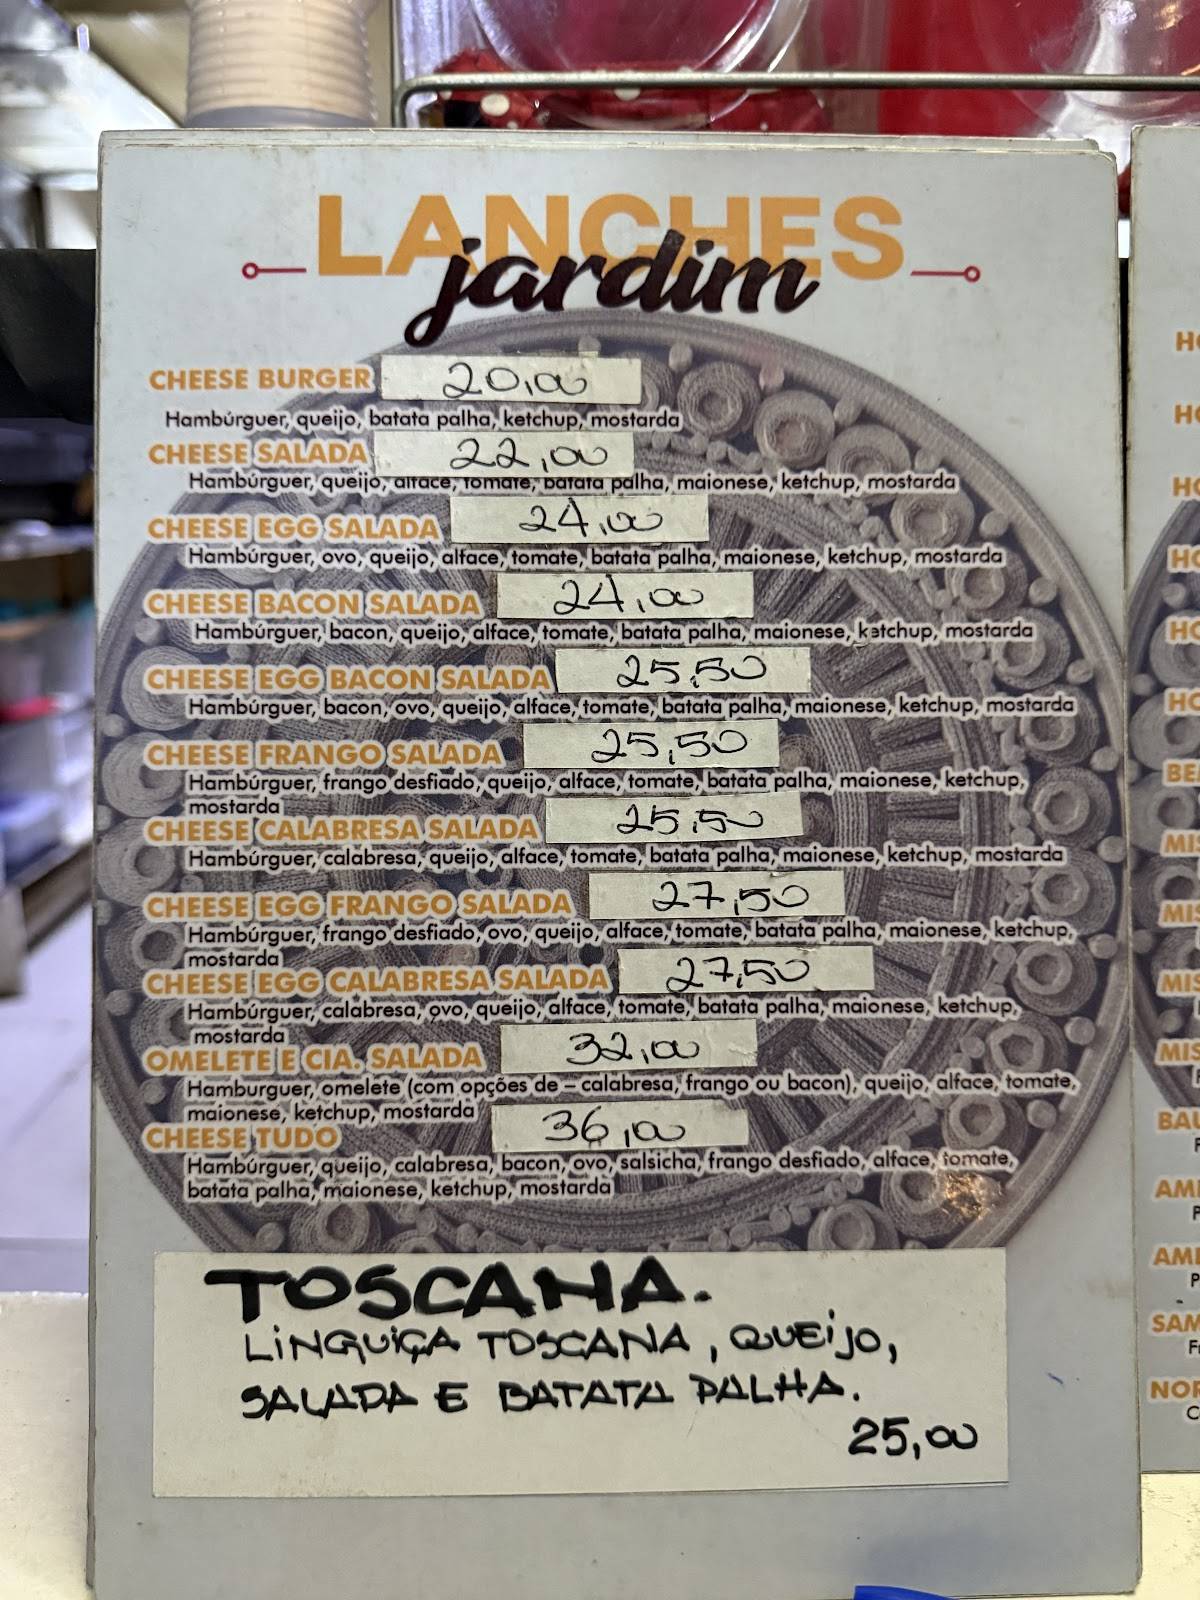 LANCHES
jardim
CHEESE BURGER 20,00
Hambúrguer, queijo, batata palha, ketchup, mostarda
CHEESE SALADA 22,00
Hambúrguer, queijo, alface, tomate, batata palha, maionese, ketchup, mostarda
CHEESE EGG SALADA 24,00
Hambúrguer, ovo, queijo, alface, tomate, batata palha, maionese, ketchup, mostarda
CHEESE BACON SALADA 24,00
Hambúrguer, bacon, queijo, alface, tomate, batata palha, maionese, ketchup, mostarda
CHEESE EGG BACON SALADA 25,50
Hambúrguer, bacon, ovo, queijo, alface, tomate, batata palha, maionese, ketchup, mostarda
CHEESE FRANGO SALADA 25,50
Hambúrguer, frango desfiado, queijo, alface, tomate, batata palha, maionese, ketchup,
mostarda
CHEESE CALABRESA SALADA 25,50
Hambúrguer, calabresa, queijo, alface, tomate, batata palha, maionese, ketchup, mostarda
CHEESE EGG FRANGO SALADA 27,50
Hambúrguer, frango desfiado, ovo, queijo, alface, tomate, batata palha, maionese, ketchup,
mostarda
CHEESE EGG CALABRESA SALADA 27,50
Hambúrguer, calabresa, ovo, queijo, alface, tomate, batata palha, maionese, ketchup,
mostarda
OMELETE E CIA. SALADA 32,00
Hamburguer, omelete (com opções de – calabresa, frango ou bacon), queijo, alface, tomate,
maionese, ketchup, mostarda
CHEESE TUDO 36,00
Hambúrguer, queijo, calabresa, bacon, ovo, salsicha, frango desfiado, alface, tomate,
batata palha, maionese, ketchup, mostarda
TOSCANA.
LINGUIÇA TOSCANA, QUEIJO,
SALADA E BATATA PALHA.
25,00